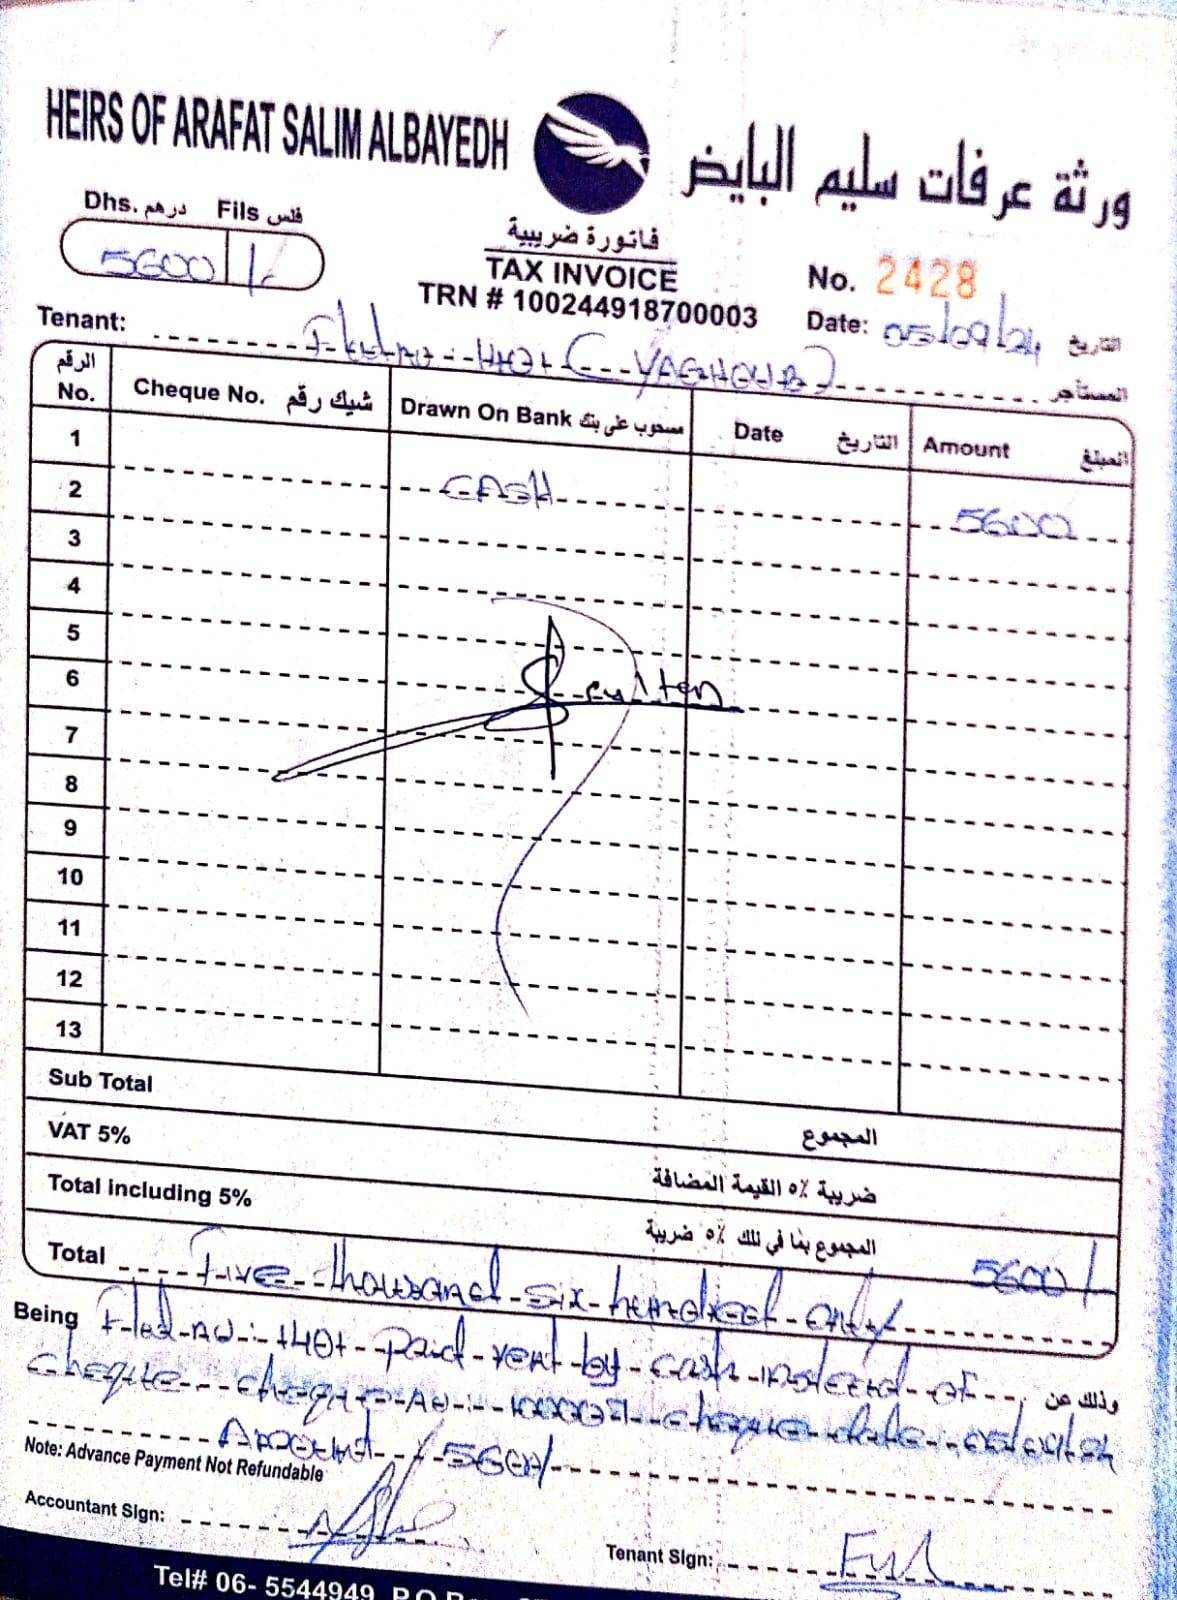 HEIRS OF ARAFAT SALIM ALBAYEDH
ورثة عرفات سليم البايض
Dhs. درهم Fils فلس
5600 /-
فاتورة ضريبية
TAX INVOICE
TRN # 100244918700003
No. 2428
Date: 05/09/24 التاريخ
Tenant: Flat No: 1401 (YAGHOUB) المستأجر
الرقم No. Cheque No. شيك رقم Drawn On Bank مسحوب على بنك Date التاريخ Amount المبلغ
1
2 CASH 5600
3
4
5
6
7
8
9
10
11
12
13
Sub Total المجموع
VAT 5% ضريبة ٥٪ القيمة المضافة
Total including 5% المجموع بما في ذلك ٥٪ ضريبة
5600/-
Total Five thousand six hundred only/
Being Flat No: 1401 paid rent by cash instead of وذلك عن
cheque cheque No: 100007 cheque date: 05/09/24
Amount 5600/-
Note: Advance Payment Not Refundable
Accountant Sign:
Tenant Sign:
Tel# 06- 5544949